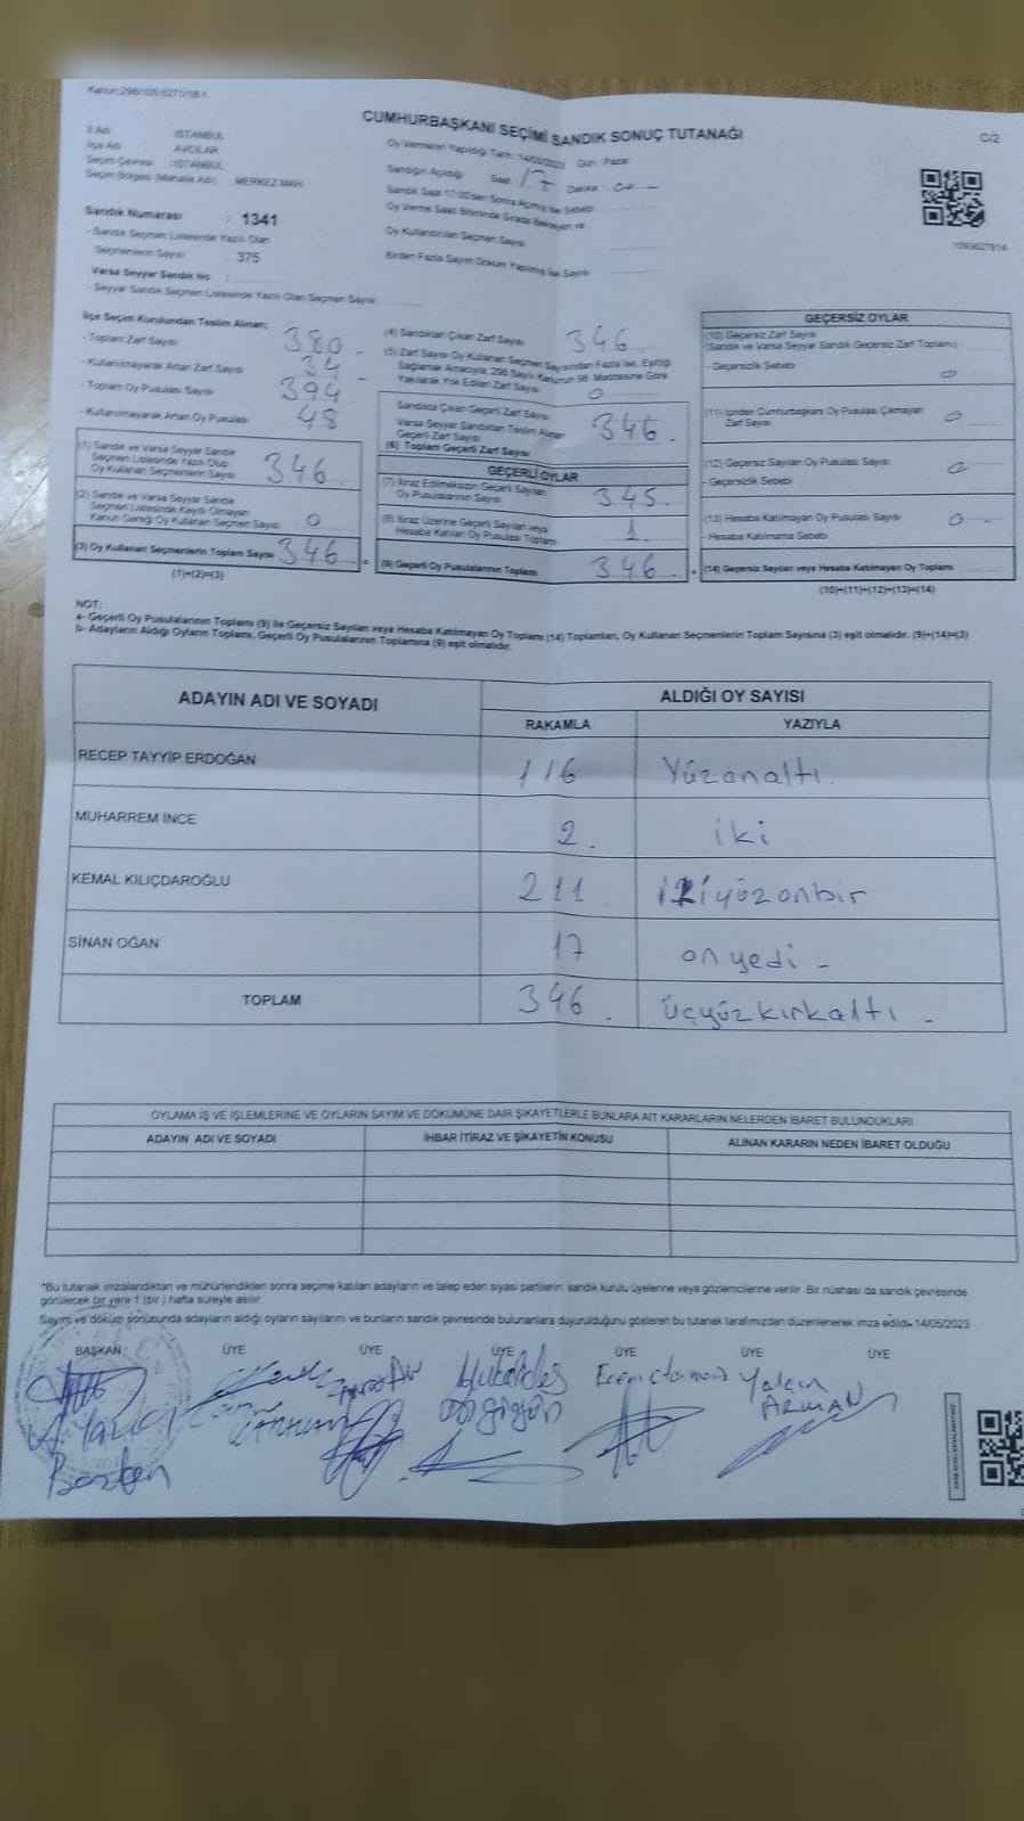 CUMHURBAŞKANI SEÇİMİ SANDIK SONUÇ TUTANAĞI
C/2
İl Adı İSTANBUL
İlçe Adı AVCILAR
Seçim Çevresi : İSTANBUL
Seçim Bölgesi (Mahalle Adı) : MERKEZ MAH.
Oy Vermenin Yapıldığı Tarih: 14/05/2023 Gün: Pazar
Sandığın Açıldığı Saat 17 Dakika
Sandık Numarası : 1341
- Sandık Seçmen Listesinde Yazılı Olan
Seçmenlerin Sayısı 375
Varsa Seyyar Sandık No :
- Seyyar Sandık Seçmen Listesinde Yazılı Olan Seçmen Sayısı
Oy Kullandırılan Seçmen Sayısı
Birden Fazla Sayım Döküm Yapılmış ise Sayısı
İlçe Seçim Kurulundan Teslim Alınan;
- Toplam Zarf Sayısı 380
- Kullanılmayarak Artan Zarf Sayısı 34
- Toplam Oy Pusulası Sayısı 394
- Kullanılmayarak Artan Oy Pusulası 48
(1) Sandık ve Varsa Seyyar Sandık
Seçmen Listesinde Yazılı Olup
Oy Kullanan Seçmenlerin Sayısı 346
(2) Sandık ve Varsa Seyyar Sandık
Seçmen Listesinde Kayıtlı Olmayan
Kanun Gereği Oy Kullanan Seçmen Sayısı 0
(3) Oy Kullanan Seçmenlerin Toplam Sayısı 346
(1)+(2)=(3)
(4) Sandıktan Çıkan Zarf Sayısı 346
(5) Zarf Sayısı Oy Kullanan Seçmen Sayısından Fazla ise, Eşitliği
Sağlamak Amacıyla, 298 Sayılı Kanunun 98. Maddesine Göre
Yakılarak Yok Edilen Zarf Sayısı 0
Sandıkta Çıkan Geçerli Zarf Sayısı
Varsa Seyyar Sandıktan Teslim Alınan
Geçerli Zarf Sayısı
(6) Toplam Geçerli Zarf Sayısı 346.
GEÇERLİ OYLAR
(7) İtiraz Edilmeksizin Geçerli Sayılan
Oy Pusulalarının Sayısı 345.
(8) İtiraz Üzerine Geçerli Sayılan veya
Hesaba Katılan Oy Pusulası Toplamı 1.
(9) Geçerli Oy Pusulalarının Toplamı 346.
GEÇERSİZ OYLAR
(10) Geçersiz Zarf Sayısı
(Sandık ve Varsa Seyyar Sandık Geçersiz Zarf Toplamı)
- Geçersizlik Sebebi 0
(11) İçinden Cumhurbaşkanı Oy Pusulası Çıkmayan
Zarf Sayısı 0
(12) Geçersiz Sayılan Oy Pusulası Sayısı 0
- Geçersizlik Sebebi
(13) Hesaba Katılmayan Oy Pusulası Sayısı 0
- Hesaba Katılmama Sebebi
(14) Geçersiz Sayılan veya Hesaba Katılmayan Oy Toplamı
(10)+(11)+(12)+(13)=(14)
NOT:
a- Geçerli Oy Pusulalarının Toplamı (9) ile Geçersiz Sayılan veya Hesaba Katılmayan Oy Toplamı (14) Toplamları, Oy Kullanan Seçmenlerin Toplam Sayısına (3) eşit olmalıdır. (9)+(14)=(3)
b- Adayların Aldığı Oyların Toplamı, Geçerli Oy Pusulalarının Toplamına (9) eşit olmalıdır.
ADAYIN ADI VE SOYADI ALDIĞI OY SAYISI
RAKAMLA YAZIYLA
RECEP TAYYİP ERDOĞAN 116 Yüzonaltı.
MUHARREM İNCE 2. iki
KEMAL KILIÇDAROĞLU 211 ikiyüzonbir
SİNAN OĞAN 17 onyedi -
TOPLAM 346. üçyüzkırkaltı -
OYLAMA İŞ VE İŞLEMLERİNE VE OYLARIN SAYIM VE DÖKÜMÜNE DAİR ŞİKAYETLERLE BUNLARA AİT KARARLARIN NELERDEN İBARET BULUNDUKLARI
ADAYIN ADI VE SOYADI İHBAR İTİRAZ VE ŞİKAYETİN KONUSU ALINAN KARARIN NEDEN İBARET OLDUĞU
*Bu tutanak imzalandıktan ve mühürlendikten sonra seçime katılan adayların ve talep eden siyasi partilerin, sandık kurulu üyelerine veya gözlemcilerine verilir. Bir nüshası da sandık çevresinde
görülecek bir yere 1 (bir) hafta süreyle asılır.
Sayım ve döküm sonucunda adayların aldığı oyların sayılarını ve bunların sandık çevresinde bulunanlara duyurulduğunu gösteren bu tutanak tarafımızdan düzenlenerek imza edildi. 14/05/2023
BAŞKAN ÜYE ÜYE ÜYE ÜYE ÜYE ÜYE
Yalçın
ARMAN